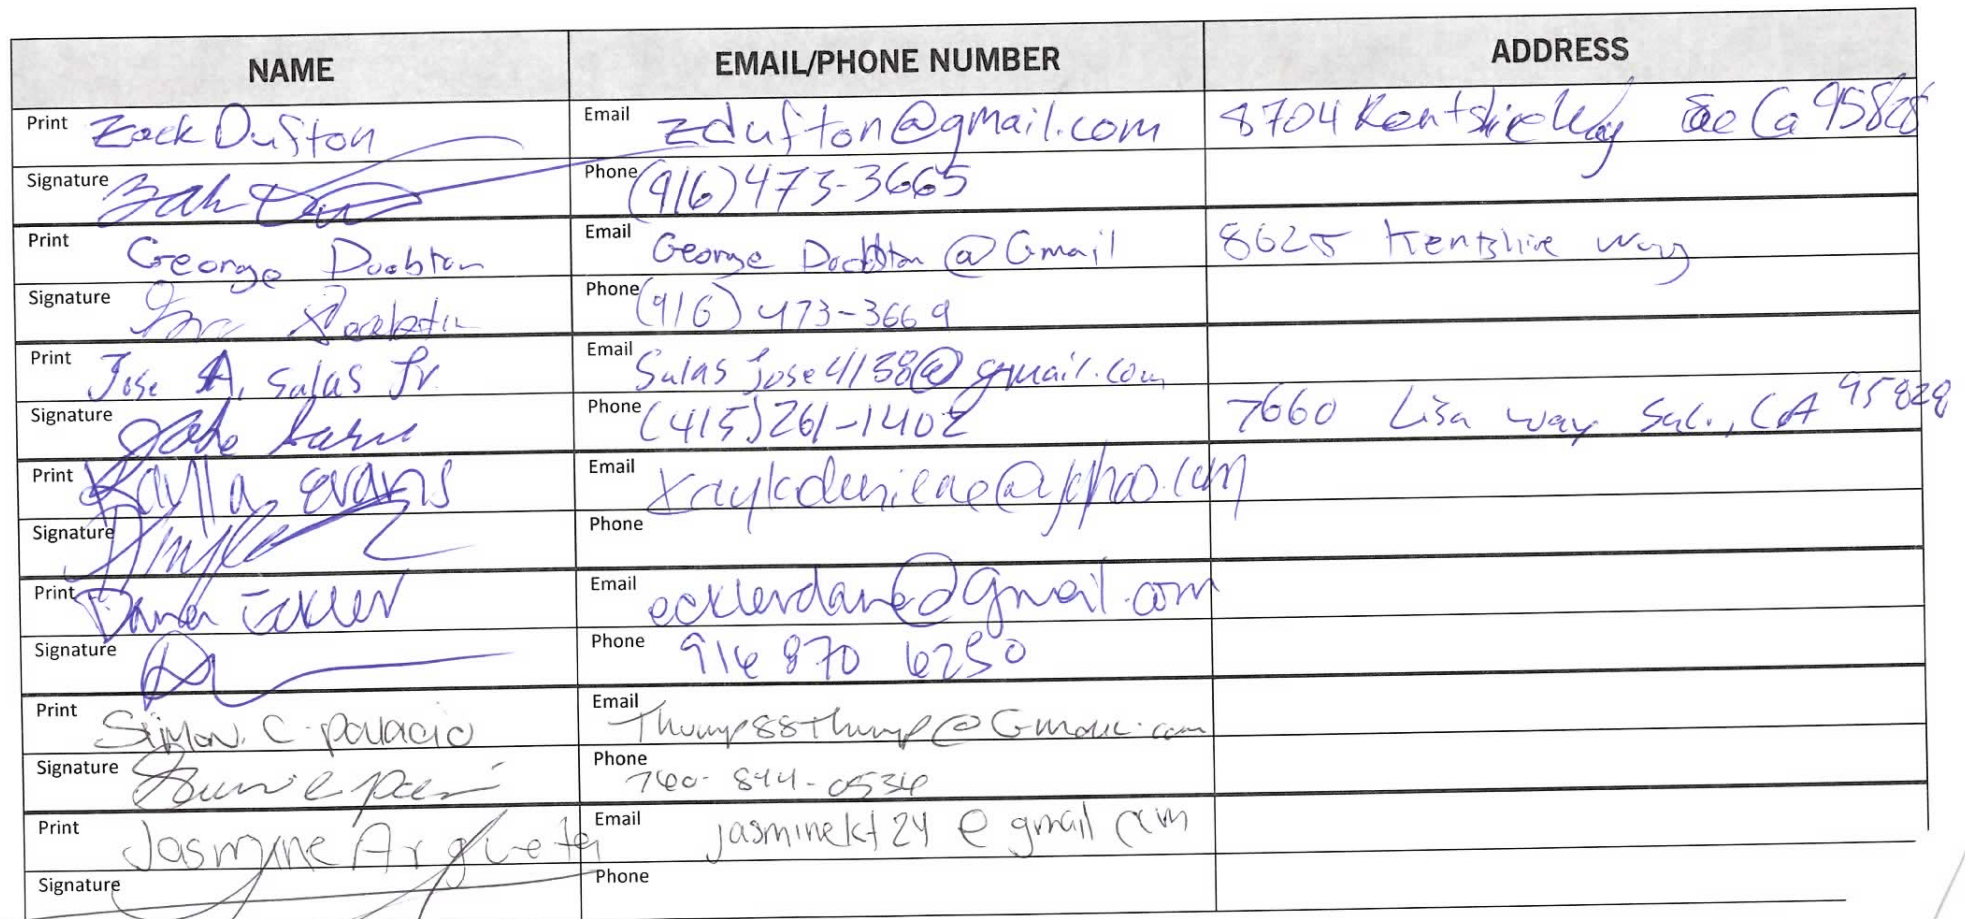 NAME EMAIL/PHONE NUMBER ADDRESS
Print Zack Dufton Email zdufton@gmail.com 8704 Kentshire Way Sac Ca 95828
Signature Phone (916) 473-3665
Print George Email George @ Gmail 8625 Kentshire Way
Signature Phone (916) 473-3669
Print Jose A. Salas Jr. Email Salasjose4138@gmail.com
Signature Phone (415) 261-1402 7660 Lisa way Sac., CA 95828
Print Kayla evans Email
Signature Phone
Print Email ecklerdane@gmail.com
Signature Phone 916 870 6250
Print Simon. C. palacio Email Thump88Thump@Gmail.com
Signature Phone 760-844-0536
Print Jasmyne Argueta Email jasminekt24@gmail com
Signature Phone